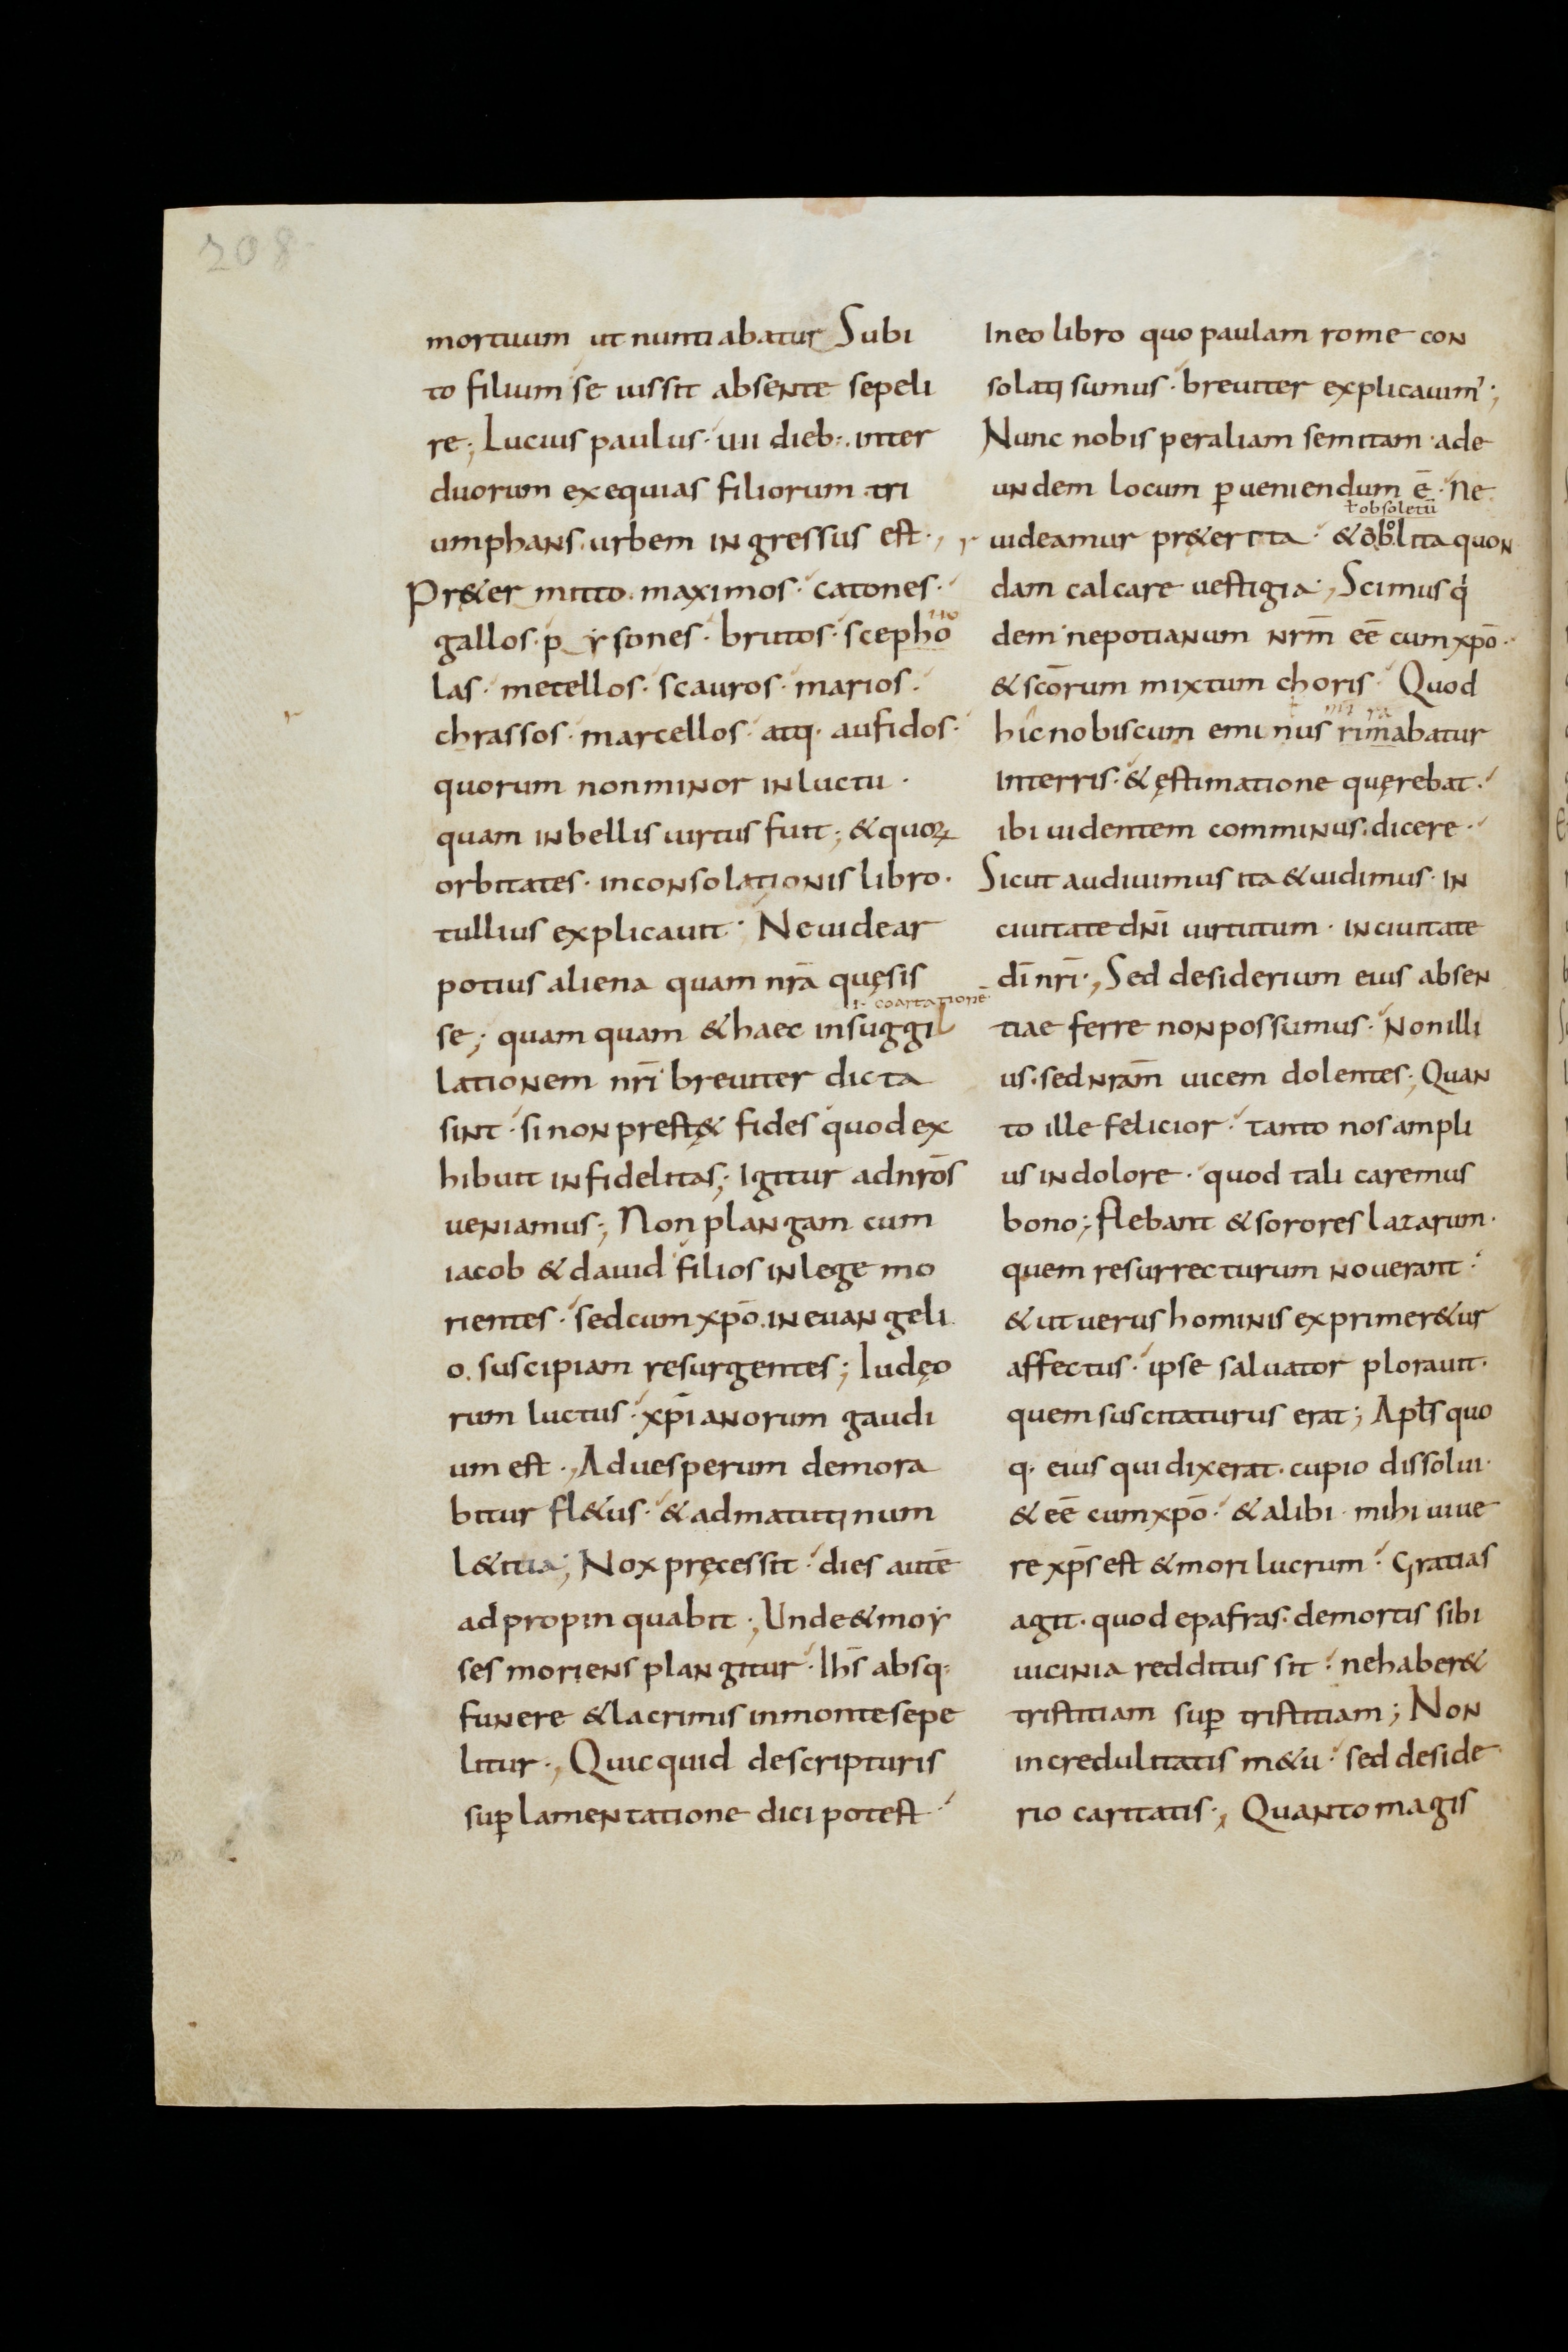 208
mortuum ut nuntiabatur Subi
to filium se iussit absente sepeli
re; Lucius paulus· uii dieb:· inter
duorum exequias filiorum tri
umphans urbem ingressus est·,
Pr&er mitto maximos· catones·
gallos· p ysones· brutos· scepho
las· metellos· scauros· marios·
chrassos· marcellos· atq· aufidos·
quorum nonminor inluctu·
quam inbellis uirtus fuit; &quoꝝ
orbitates· inconsolationis libro·
tullius explicauit· Ne uidear
potius aliena quam nr̄a quęsis
ƚ coartationē
se; quam quam &haec insuggil
lationem nr̄i breuiter dicta
sint· si non prest& fides quod ex
hibuit infidelitas; Igitur adnrōs
ueniamus; Non plangam cum
iacob & dauid filios inlege mo
rientes· sedcum xp̄o ineuangeli
o suscipiam resurgentes; Iudęo
rum luctus· xp̄ianorum gaudi
um est·, Aduesperum demora
bitur fl&us· & admatutinum
l&itia; Nox pręcessit· dies autē
adpropinquabit·, Unde&moy
ses moriens plangitur· Ihs̄ absq:
funere &lacrimis inmontesepe
litur·, Quicquid descripturis
suꝑ lamentatione dici potest·
Ineo libro quo paulam rome con
solati sumus· breuiter explicauim';
Nunc nobis peraliam semitam· ade
undem locum ꝑueniendum ē· Ne
ƚ obsoletū
uideamur pr&erita· &obolita quon
dam calcare uestigia·, Scimus q i
dem nepotianum nrm̄ eē cum xp̄o·
&scōrum mixtum choris· Quod
hic nobiscum eminus rimabatur
Interris· & ęstimatione quęrebat·
ibi uidentem comminus dicere·
Sicut audiuimus ita &uidimus· in
ciuitate dn̄i uirtutum· inciuitate
dī nr̄i·, Sed desiderium eius absen
tiae ferre non possumus· Non illi
us· sed nrām uicem dolentes·, Quan
to ille felicior· tanto nos ampli
us indolore· quod tali caremus
bono; flebant & sorores lazarum·
quem resurrecturum nouerant·
& ut uerus hominis exprimer&us
affectus· ipse saluator plorauit·
quem suscitaturus erat; Apłs quo
q· eius qui dixerat· cupio dissolui·
& eē cum xp̄o· & alibi· mihi uiue
re xp̄s est &mori lucrum· Gratias
agit· quod epafras· demortis sibi
uicinia redditus sit· nehaber&
tristitiam suꝑ tristitiam; Non
incredulitatis m&u· sed deside
rio caritatis·, Quanto magis